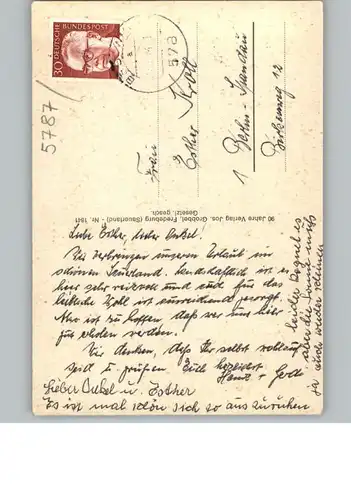 30
DEUTSCHE BUNDESPOST
578
5787
Frau
Esther Kroll
1 Berlin-Spandau
Birkenweg 12
90 Jahre Verlag Jos. Grobbel, Fredeburg (Sauerland) - Nr. 1841
Gesetzl. gesch.
Liebe Esther, lieber Onkel!
Wir verbringen unseren Urlaub im
schönen Sauerland. Landschaftlich ist es
hier sehr reizvoll und auch für das
leibliche Wohl ist ausreichend gesorgt.
Nur ist zu hoffen, daß wir uns hier
gut erholen werden.
Wir denken, daß Ihr selbst wohlauf
seid u. grüßen Euch herzlichst
Hans + Gerdi
Lieber Onkel u. Esther
Es ist mal schön sich so auszuruhen
leider regnet es
aber die Lunge muß
ja auch wieder